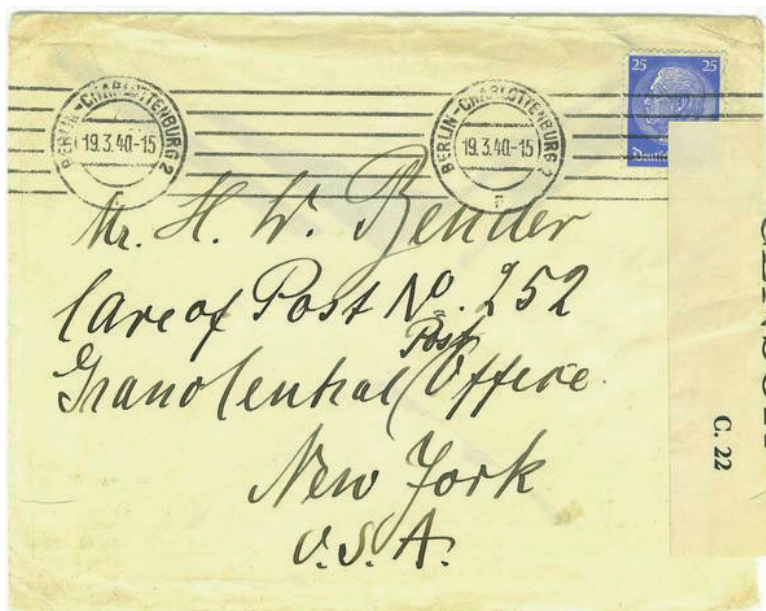 25 25
BERLIN-CHARLOTTENBURG 2
19.3.40-15
BERLIN-CHARLOTTENBURG 2
19.3.40-15
Mr. H. W. Bender
Care of Post No. 252
Post
Grand Central Office
New York
U.S.A.
C. 22